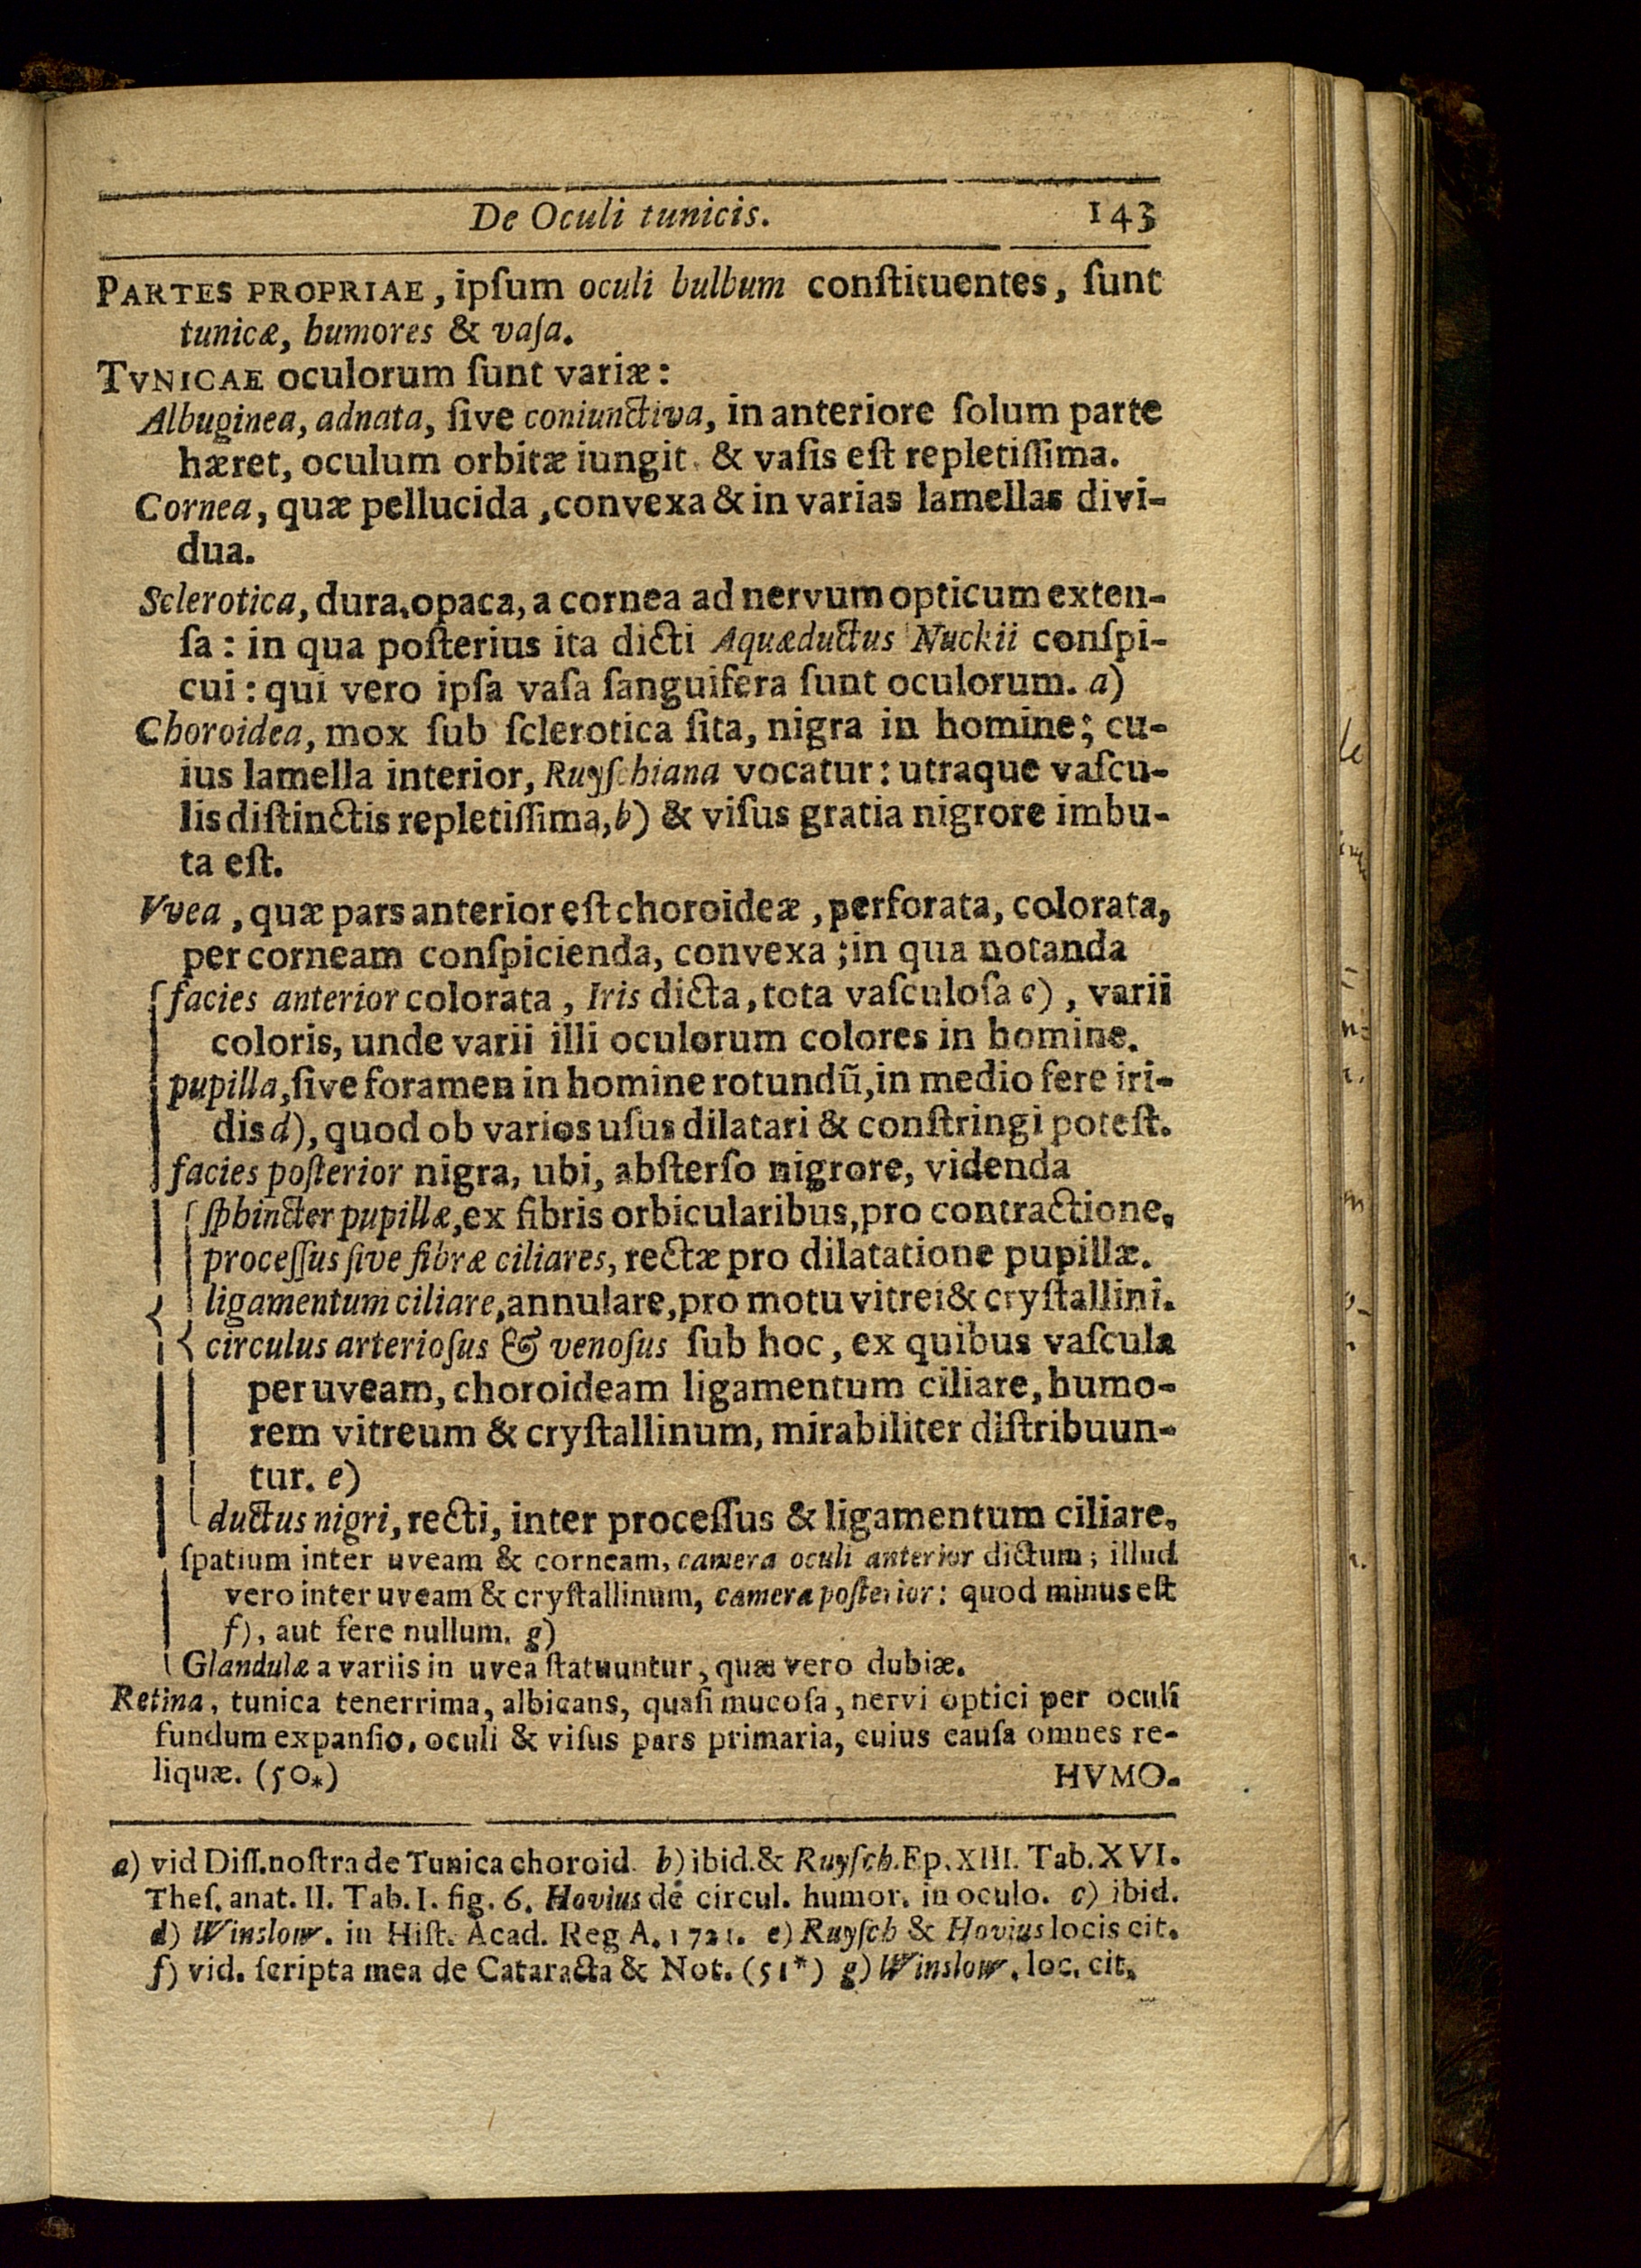 De Oculi tunicis. 143
PARTES PROPRIAE, ipſum oculi bulbum conſtituentes, ſunt
tunicæ, humores & vaſa.
TVNICAE oculorum ſunt variæ:
Albuginea, adnata, ſive coniunctiva, in anteriore ſolum parte
hæret, oculum orbitæ iungit & vaſis eſt repletiſſima.
Cornea, quæ pellucida, convexa & in varias lamellas divi-
dua.
Sclerotica, dura, opaca, a cornea ad nervum opticum exten-
ſa: in qua poſterius ita dicti Aquæductus Nuckii conſpi-
cui: qui vero ipſa vaſa ſanguifera ſunt oculorum. a)
Choroidea, mox ſub ſclerotica ſita, nigra in homine; cu-
ius lamella interior, Ruyſchiana vocatur: utraque vaſcu-
lis diſtinctis repletiſſima, b) & viſus gratia nigrore imbu-
ta eſt.
Vvea, quæ pars anterior eſt choroideæ, perforata, colorata,
per corneam conſpicienda, convexa; in qua notanda
facies anterior colorata, Iris dicta, tota vaſculoſa c), varii
coloris, unde varii illi oculorum colores in homine.
pupilla, ſive foramen in homine rotundū, in medio fere iri-
dis d), quod ob varios uſus dilatari & conſtringi poteſt.
facies poſterior nigra, ubi, abſterſo nigrore, videnda
ſphincter pupillæ, ex fibris orbicularibus, pro contractione.
proceſſus ſive fibræ ciliares, rectæ pro dilatatione pupillæ.
ligamentum ciliare, annulare, pro motu vitrei & cryſtallini.
circulus arterioſus & venoſus ſub hoc, ex quibus vaſcula
per uveam, choroideam ligamentum ciliare, humo-
rem vitreum & cryſtallinum, mirabiliter diſtribuun-
tur. e)
ductus nigri, recti, inter proceſſus & ligamentum ciliare.
ſpatium inter uveam & corneam, camera oculi anterior dictum; illud
vero inter uveam & cryſtallinum, camera poſterior: quod minus eſt
f), aut fere nullum. g)
Glandulæ a variis in uvea ſtatuuntur, quæ vero dubiæ.
Retina, tunica tenerrima, albicans, quaſi mucoſa, nervi optici per oculi
fundum expanſio, oculi & viſus pars primaria, cuius cauſa omnes re-
liquæ. (50*) HVMO-
a) vid Diſſ. noſtra de Tunica choroid. b) ibid. & Ruyſch. Ep. XIII. Tab. XVI.
Theſ. anat. II. Tab. I. fig. 6. Hovius de circul. humor. in oculo. c) ibid.
d) Winslow. in Hiſt. Acad. Reg A. 1721. e) Ruyſch & Hovius locis cit.
f) vid. ſcripta mea de Cataracta & Not. (51*) g) Winslow. loc. cit.